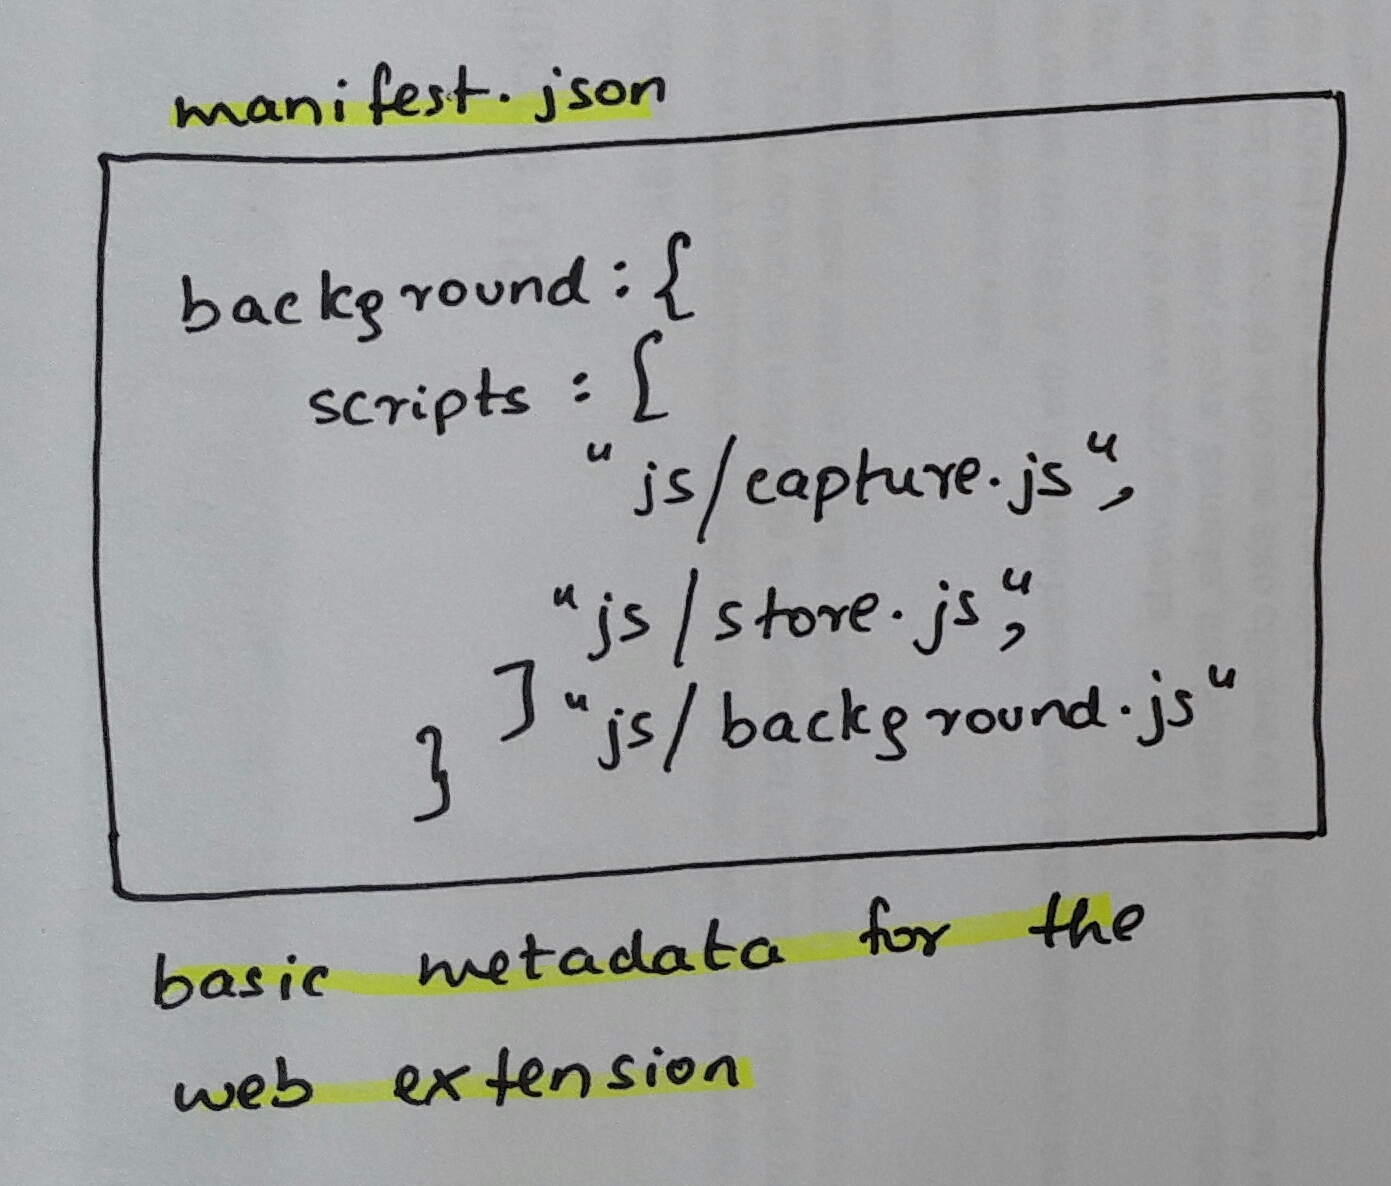 manifest.json
background : {
scripts : [
"js/capture.js",
"js/store.js",
] "js/background.js"
}
basic metadata for the
web extension